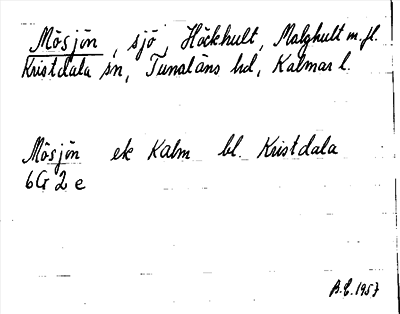 Mösjön, sjö, Höckhult, Malghult m. fl.
Kristdala sn, Tunaläns hd, Kalmar l.
Mösjön ek Kalm bl. Kristdala
6G 2 e
B.E. 1957